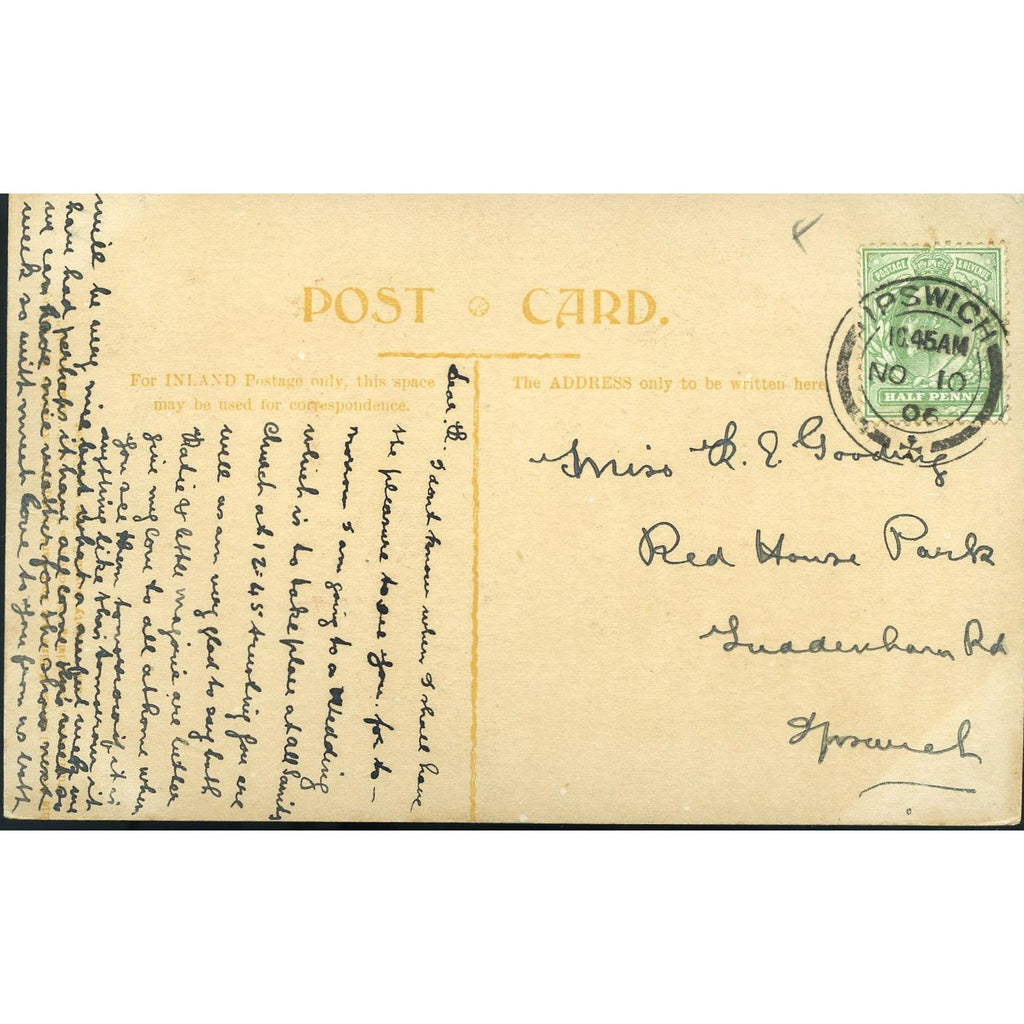 POST CARD.
For INLAND Postage only, this space
may be used for correspondence.
The ADDRESS only to be written here
POSTAGE & REVENUE
HALF PENNY
IPSWICH
10.45AM
NO 10
06
Miss R. E. Gooding
Red House Park
Tuddenham Rd
Ipswich
Dear R. I dont know when I shall have
the pleasure to see you. for to-
morrow I am going to a Wedding
which is to take place at All Saints
Church at 12-45 trusting you are
well as am very glad to say both
Katie & little Majorie are better
give my love to all at home when
you see them tomorrow if it is
anything like this tomorrow it
will be very nice but what a week we
have had, perhaps it have all come this week so
we can have nice weather for the show next
week so with much love to you from us both